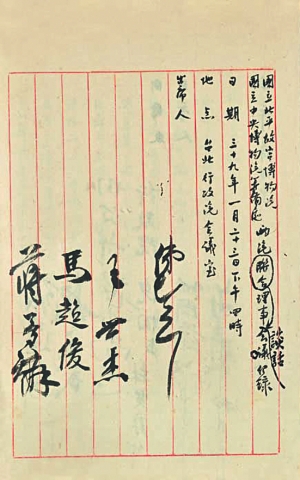 國立北平故宮博物院
國立中央博物院籌備處
兩院聯合理事會議紀錄
談話
日期 三十九年一月二十三日下午四時
地点 台北行政院会議室
出席人
王世杰
馬超俊
蔣夢麟